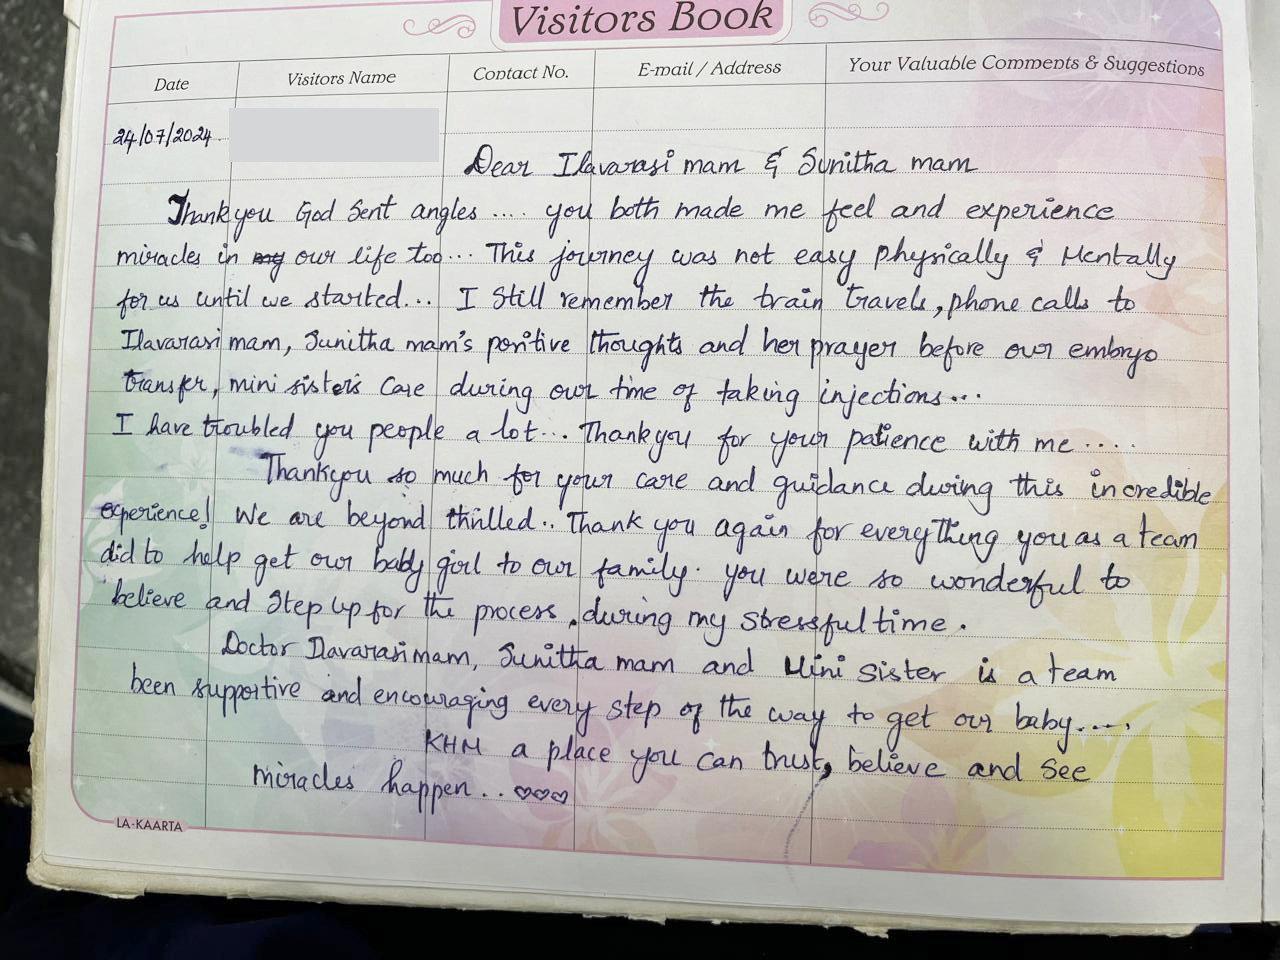 Visitors Book
Date Visitors Name Contact No. E-mail / Address Your Valuable Comments & Suggestions
24/07/2024
Dear Ilavarasi mam & Sunitha mam
Thankyou God Sent angles .... you both made me feel and experience
miracles in my our life too... This journey was not easy physically & Mentally
for us until we started... I Still remember the train travels, phone calls to
Ilavarasi mam, Sunitha mam's positive thoughts and her prayer before our embryo
transfer, mini sister's care during our time of taking injections...
I have troubled you people a lot... Thankyou for your patience with me ....
Thankyou so much for your care and guidance during this incredible
experience! We are beyond thrilled.. Thank you again for everything you as a team
did to help get our baby girl to our family. you were so wonderful to
believe and Step up for the process, during my stressful time.
Doctor Ilavarasi mam, Sunitha mam and Mini sister is a team
been supportive and encouraging every step of the way to get our baby....
KHM a place you can trust, believe and see
miracles happen.. ♡♡♡
LA-KAARTA